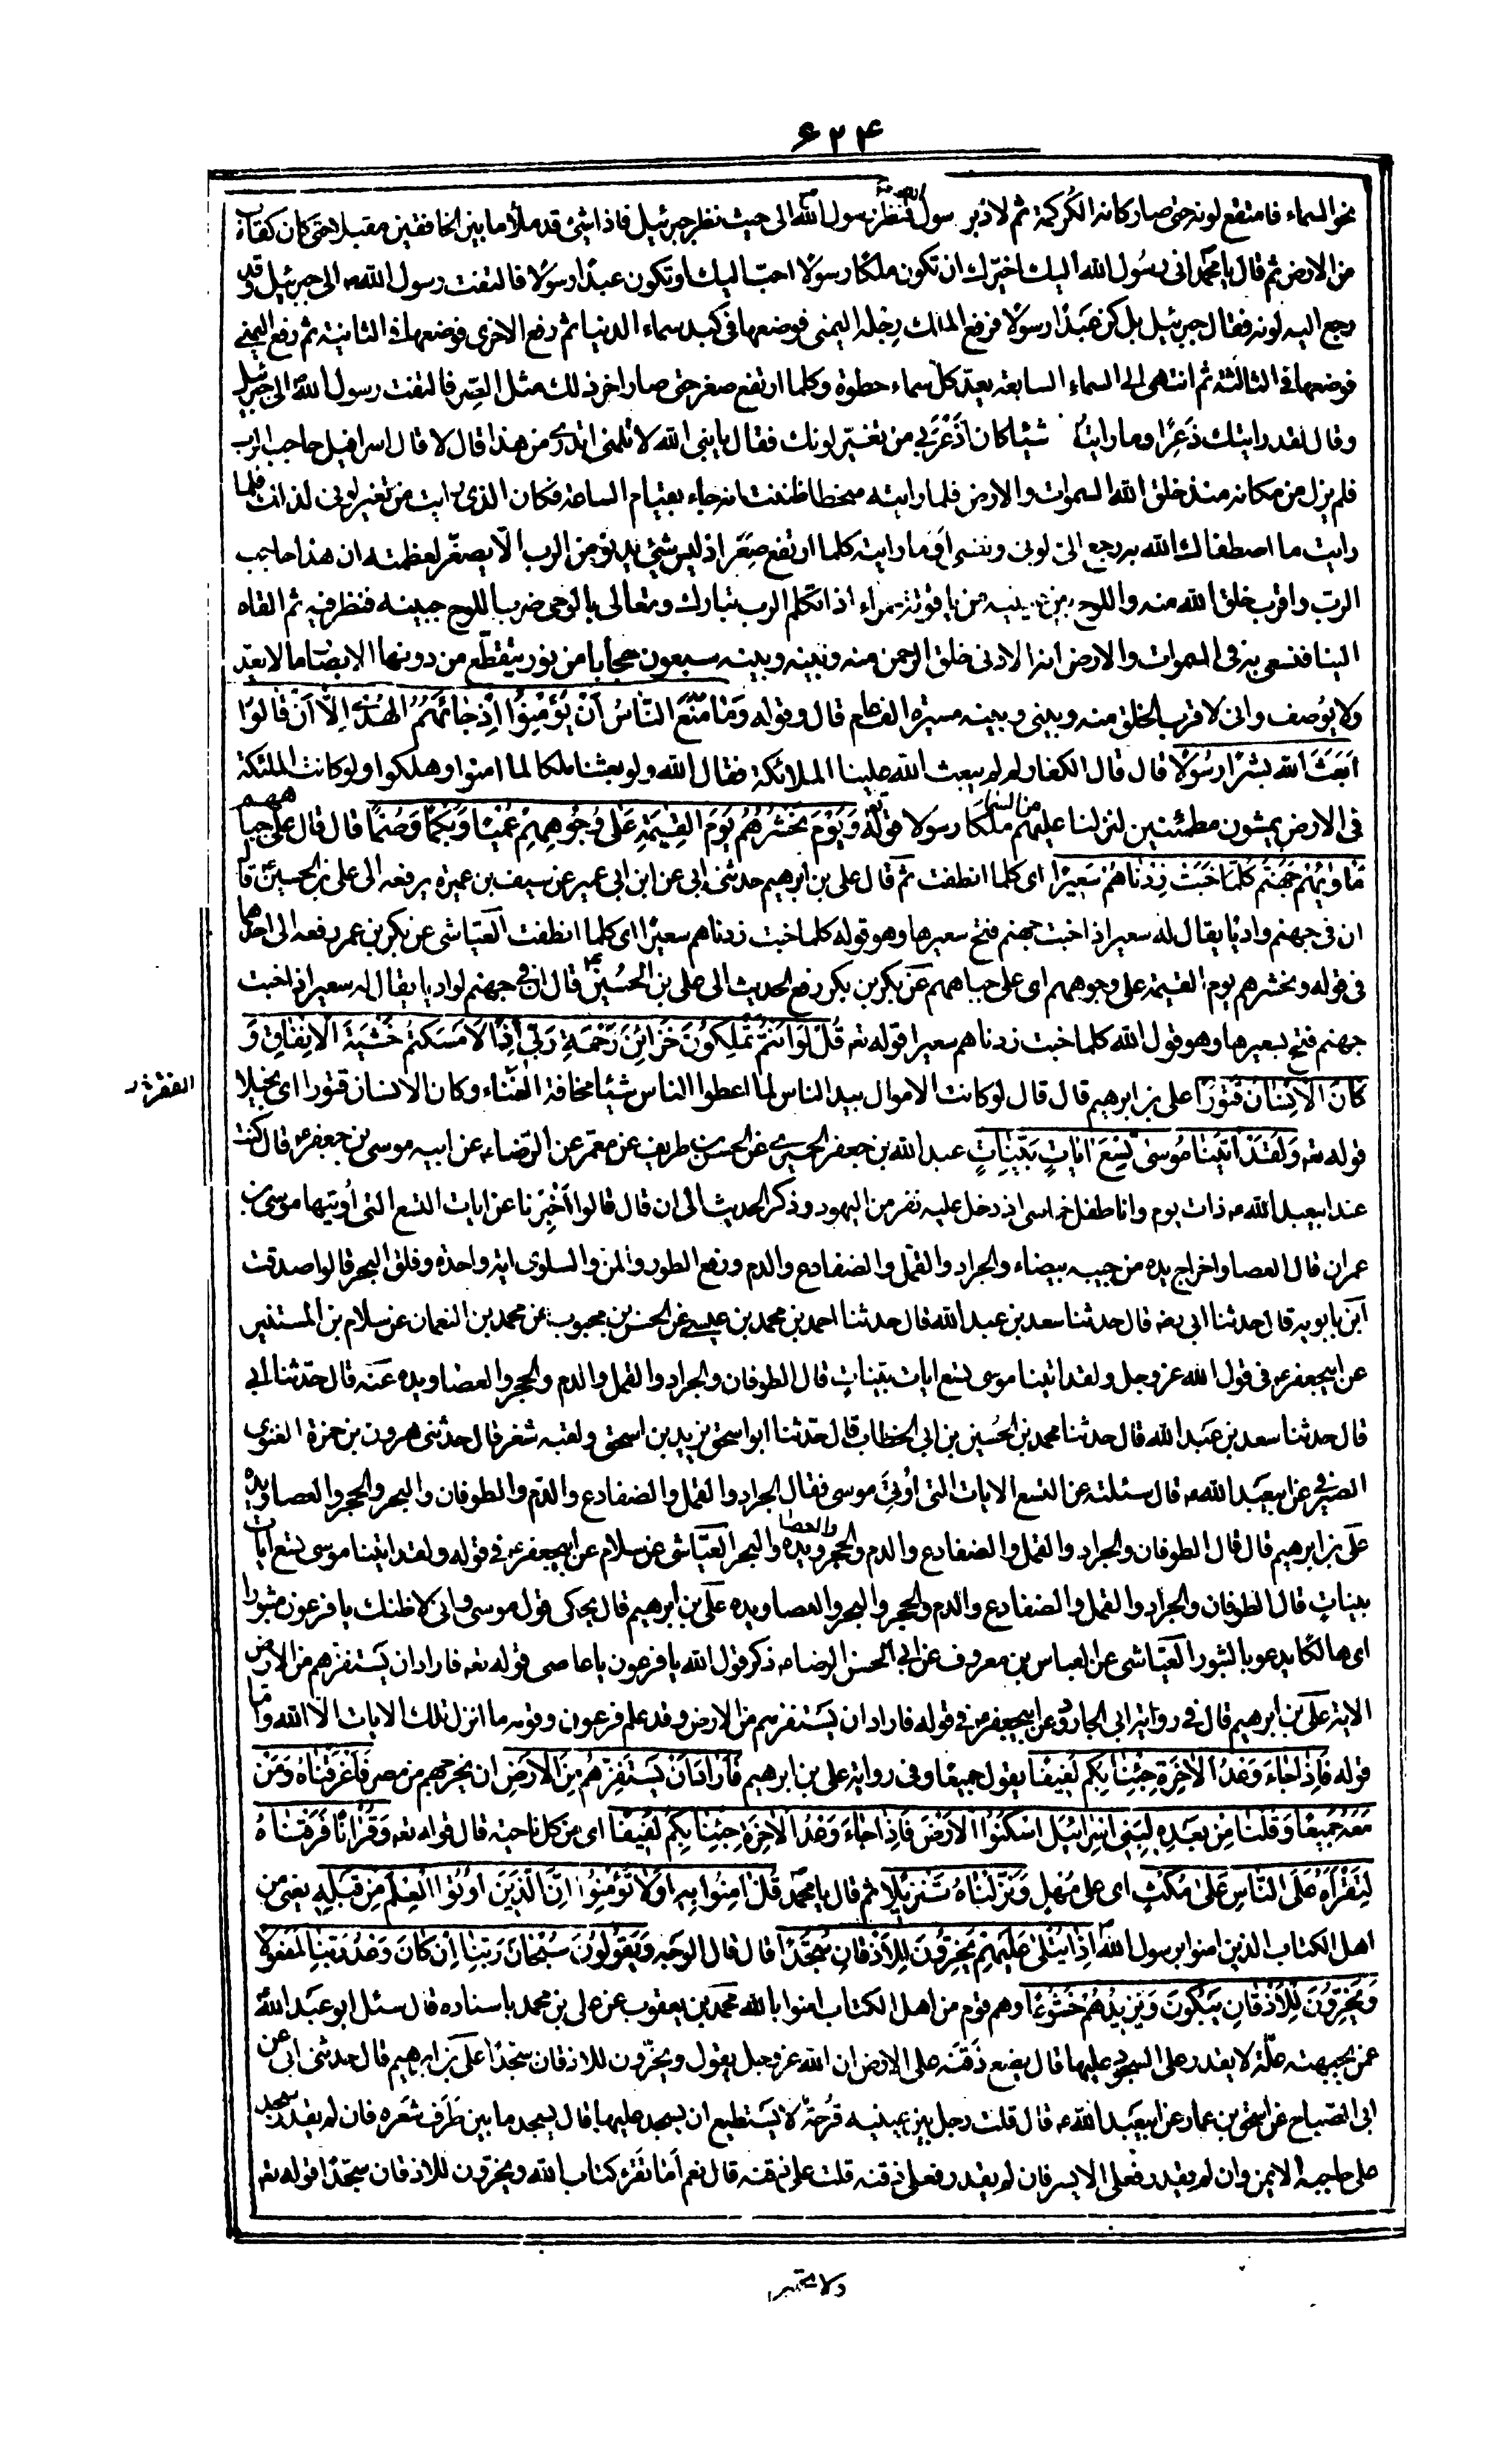 ۶۲۴
نحو السماء فامتقع لونه حتى صار كانه الكركمة ثم لاذ بر سول الله فنظر رسول الله الى حيث نظر جبرئيل فاذا شئ قد ملأ ما بين الخافقين مقبلا حتى كان كقاب
من الارض ثم قال يا محمد انى رسول الله اليك اخيرك ان تكون ملكا رسولا احب اليك او تكون عبدا رسولا فالتفت رسول الله ص الى جبرئيل وقد
رجع اليه لونه فقال جبرئيل بل كن عبدا رسولا فرفع الملك رجله اليمنى فوضعها فى كبد سماء الدنيا ثم رفع الاخرى فوضعها فى الثانية ثم رفع اليمنى
فوضعها فى الثالثة ثم انتهى الى السماء السابعة بعد كل سماء خطوة وكلما ارتفع صغر حتى صار اخر ذلك مثل الصر فالتفت رسول الله الى جبرئيل
وقال لقد رايتك ذعرا وما رايت شيئا كان اذعر لى من تغير لونك فقال يا نبى الله لا تلمنى اتدرى من هذا قال لا قال اسرافيل حاجب الرب
فلم يزل من مكانه منذ خلق الله السموات والارض فلما رايته منحطا ظننت انه جاء بقيام الساعة فكان الذى رايت من تغير لونى لذلك فلما
رايت ما اصطفاك الله به رجع الى لونى ونفسى او ما رايته كلما ارتفع صغر اذ ليس شئ يدنو من الرب الا يصغر لعظمته ان هذا حاجب
الرب واقرب خلق الله منه واللوح بين عينيه من ياقوتة حمراء اذا تكلم الرب تبارك وتعالى بالوحى ضرب اللوح جبينه فنظر فيه ثم القاه
الينا فنسعى به فى السموات والارض انه لادنى خلق الرحمن منه وبينه وبينه سبعون حجابا من نور يتقطع من دونها الابصار ما لا يعد
ولا يوصف وانى لاقرب الخلق منه وبينى وبينه مسيرة الف عام قال وقوله وَمَا مَنَعَ النَّاسَ أَنْ يُؤْمِنُوا إِذْ جَائَهُمُ الْهُدى إِلَّا أَنْ قَالُوا
أَبَعَثَ الله بَشَرًا رَسُولًا قال قال الكفار لم لم يبعث الله علينا الملائكة فقال الله ولو بعثنا ملكا لما امنوا وهلكوا ولو كانت الملئكة
فى الارض يمشون مطمئنين لنزلنا عليهم من السماء ملكا رسولا قوله تع وَيَوْمَ نَحْشُرُهُمْ يَوْمَ الْقِيمَةِ عَلى وُجُوهِهِمْ عُمْيًا وَبُكْمًا وَصُمًّا قال قال على جباههم
مَأْوهُمْ جَهَنَّمُ كُلَّمَا خَبَتْ زِدْنَاهُمْ سَعِيرًا اى كلما انطفت ثم قال على بن ابرهيم حدثنى ابى عن ابن ابى عمير عن سيف بن عميرة يرفعه الى على بن الحسين ع قال
ان فى جهنم واديا يقال له سعير اذا خبت جهنم فتح سعيرها وهو قوله كلما خبت زدناهم سعيرا اى كلما انطفت العياشى عن بكر بن عمر رفعه الى احدهما
فى قوله ونحشرهم يوم القيمة على وجوههم اى على جباههم عن بكر بن بكر رفع الحديث الى على بن الحسين ع قال ان فى جهنم لواديا يقال له سعير اذا خبت
جهنم فتح بسعيرها وهو قول الله كلما خبت زدناهم سعيرا قوله تع قُلْ لَوْ أَنْتُمْ تَمْلِكُونَ خَزَائِنَ رَحْمَةِ رَبّى إِذًا لَأَمْسَكْتُمْ خَشْيَةَ الْإِنْفَاقِ وَ
كَانَ الْإِنْسَانُ قَتُورًا على بن ابرهيم قال قال لو كانت الاموال بيد الناس لما اعطوا الناس شيئا مخافة الفناء وكان الانسان قتورا اى بخيلا
الفقر
قوله تع وَلَقَدْ اتَيْنَا مُوسى تِسْعَ ايَاتٍ بَيِّنَاتٍ عبد الله بن جعفر الحميرى عن الحسن بن طريف عن معمر عن الرضا ع عن ابيه موسى بن جعفر ع قال كنت
عند ابيعبد الله ع ذات يوم وانا طفل خماسى اذ دخل عليه نفر من اليهود وذكر الحديث الى ان قال قالوا اخبرنا عن ايات التسع التى اوتيها موسى بن
عمران قال العصا واخراج يده من جيبه بيضاء والجراد والقمل والضفادع والدم ورفع الطور والمن والسلوى اية واحدة وفلق البحر قالوا صدقت
ابن بابويه قال حدثنا ابى رضه قال حدثنا سعد بن عبد الله قال حدثنا احمد بن محمد بن عيسى عن الحسن بن محبوب عن محمد بن النعمان عن سلام بن المستنير
عن ابيجعفر ع فى قول الله عز وجل ولقد اتينا موسى تسع ايات بينات قال الطوفان والجراد والقمل والدم والحجر والعصا ويده عنه قال حدثنا ابى
قال حدثنا سعد بن عبد الله قال حدثنا محمد بن الحسين بن ابى الخطاب قال حدثنا ابو اسحق يزيد بن اسحق ولقبه شغر قال حدثنى هرون بن حمزة الغنوى
الصيرفى عن ابيعبد الله ع قال سئلته عن التسع الايات التى اوتى موسى فقال الجراد والقمل والضفادع والدم والطوفان والبحر والحجر والعصا ويده
على بن ابرهيم قال قال الطوفان والجراد والقمل والضفادع والدم والحجر والعصا ويده والبحر العياشى عن سلام عن ابيجعفر ع فى قوله ولقد اتينا موسى تسع ايات
بينات قال الطوفان والجراد والقمل والضفادع والدم والحجر والبحر والعصا ويده على بن ابرهيم قال يحكى قول موسى وانى لاظنك يا فرعون مثبورا
اى هالكا يدعو بالثبور العياشى عن العباس بن معروف عن ابى الحسن الرضا ع ذكر قول الله يا فرعون يا عاصى قوله تع فاراد ان يستفزهم من الارض
الاية على بن ابرهيم قال فى رواية ابى الجارود عن ابيجعفر ع فى قوله فاراد ان يستفزهم من الارض وقد علم فرعون وقومه ما انزل تلك الايات الا الله واما
قوله فَإِذَا جَاءَ وَعْدُ الْاخِرَةِ جِئْنَا بِكُمْ لَفِيفًا يقول جميعا وفى رواية على بن ابرهيم فَأَرَادَ أَنْ يَسْتَفِزَّهُمْ مِنَ الْأَرْضِ ان يخرجهم من مصر فَأَغْرَقْنَاهُ وَمَنْ
مَعَهُ جَمِيعًا وَقُلْنَا مِنْ بَعْدِهِ لِبَنِى إِسْرَائِيلَ اسْكُنُوا الْأَرْضَ فَإِذَا جَاءَ وَعْدُ الْاخِرَةِ جِئْنَا بِكُمْ لَفِيفًا اى من كل ناحية قال قوله تع وَقُرْانًا فَرَقْنَاهُ
لِتَقْرَأَهُ عَلَى النَّاسِ عَلى مُكْثٍ اى على مهل وَنَزَّلْنَاهُ تَنْزِيلًا ثم قال يا محمد قُلْ امِنُوا بِهِ أَوْ لَا تُؤْمِنُوا إِنَّ الَّذِينَ أُوتُوا الْعِلْمَ مِنْ قَبْلِهِ يعنى من
اهل الكتاب الذين امنوا برسول الله إِذَا يُتْلى عَلَيْهِمْ يَخِرُّونَ لِلْأَذْقَانِ سُجَّدًا قال قال الوجه وَيَقُولُونَ سُبْحَانَ رَبِّنَا إِنْ كَانَ وَعْدُ رَبِّنَا لَمَفْعُولًا
وَيَخِرُّونَ لِلْأَذْقَانِ يَبْكُونَ وَيَزِيدُهُمْ خُشُوعًا وهم قوم من اهل الكتاب امنوا بالله محمد بن يعقوب عن على بن محمد باسناده قال سئل ابو عبد الله
عمن بجبهته علة لا يقدر على السجود عليها قال يضع ذقنه على الارض ان الله عز وجل يقول ويخرون للاذقان سجدا على بن ابرهيم قال حدثنى ابى عن
ابى الصباح عن اسحق بن عمار عن ابيعبد الله ع قال قلت رجل بين عينيه قرحة لا يستطيع ان يسجد عليها قال يسجد ما بين طرف شعره فان لم يقدر سجد
على حاجبه الايمن وان لم يقدر فعلى الايسر فان لم يقدر فعلى ذقنه قلت على ذقنه قال نعم اما تقرء كتاب الله ويخرون للاذقان سجدا قوله تع
ولا تجهر